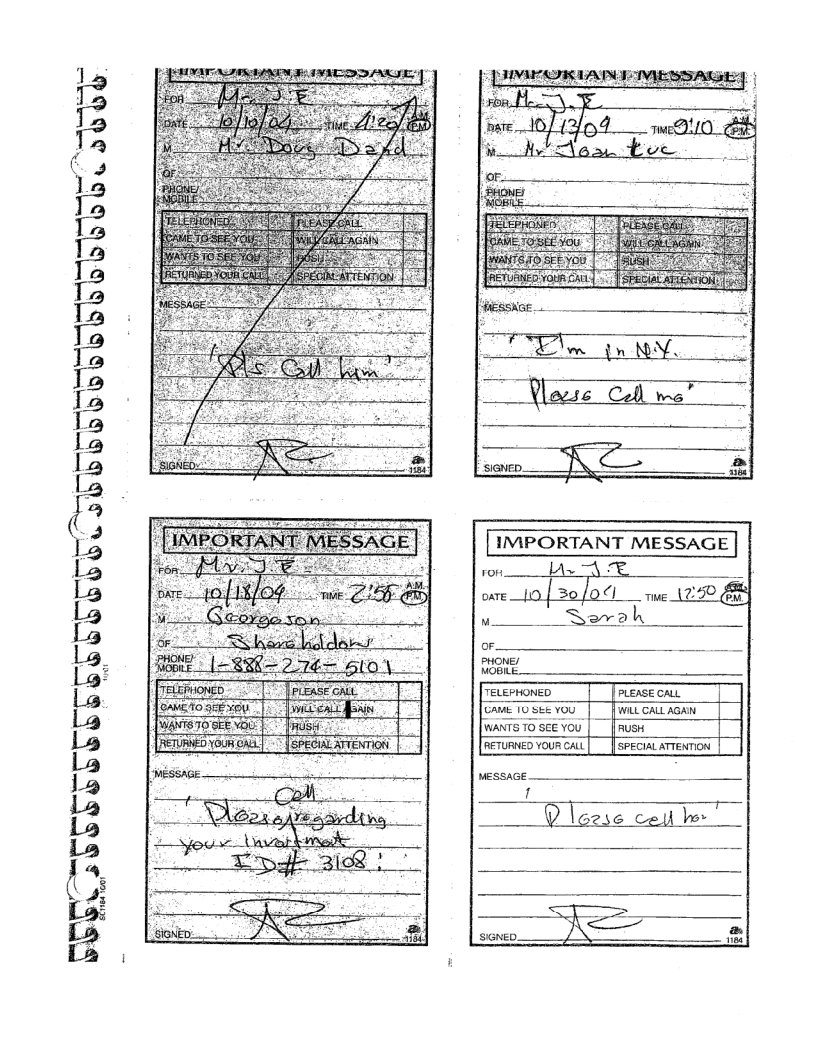 IMPORTANT MESSAGE
FOR Mr. J.E
DATE 10/10/04 TIME 4:20 A.M. P.M.
M Mr. Doug Band
OF
PHONE/
MOBILE
TELEPHONED PLEASE CALL
CAME TO SEE YOU WILL CALL AGAIN
WANTS TO SEE YOU RUSH
RETURNED YOUR CALL SPECIAL ATTENTION
MESSAGE
"Pls Call him"
SIGNED
1184
IMPORTANT MESSAGE
FOR Mr. J.E
DATE 10/13/04 TIME 9:10 A.M. P.M.
M Mr Jean Luc
OF
PHONE/
MOBILE
TELEPHONED PLEASE CALL
CAME TO SEE YOU WILL CALL AGAIN
WANTS TO SEE YOU RUSH
RETURNED YOUR CALL SPECIAL ATTENTION
MESSAGE
"I'm in N.Y.
Please Call me"
SIGNED
1184
IMPORTANT MESSAGE
FOR Mr. J.E
DATE 10/18/04 TIME 2:55 A.M. P.M.
M Georgeson
OF Shareholdors
PHONE/
MOBILE 1-888-274-5101
TELEPHONED PLEASE CALL
CAME TO SEE YOU WILL CALL AGAIN
WANTS TO SEE YOU RUSH
RETURNED YOUR CALL SPECIAL ATTENTION
MESSAGE
Call
"Please regarding
your invostment
ID# 3108"
SIGNED
1184
SC1184 10/01
IMPORTANT MESSAGE
FOR Mr J.E
DATE 10/30/04 TIME 12:50 P.M.
M Sarah
OF
PHONE/
MOBILE
TELEPHONED PLEASE CALL
CAME TO SEE YOU WILL CALL AGAIN
WANTS TO SEE YOU RUSH
RETURNED YOUR CALL SPECIAL ATTENTION
MESSAGE
"Please call her"
SIGNED
1184